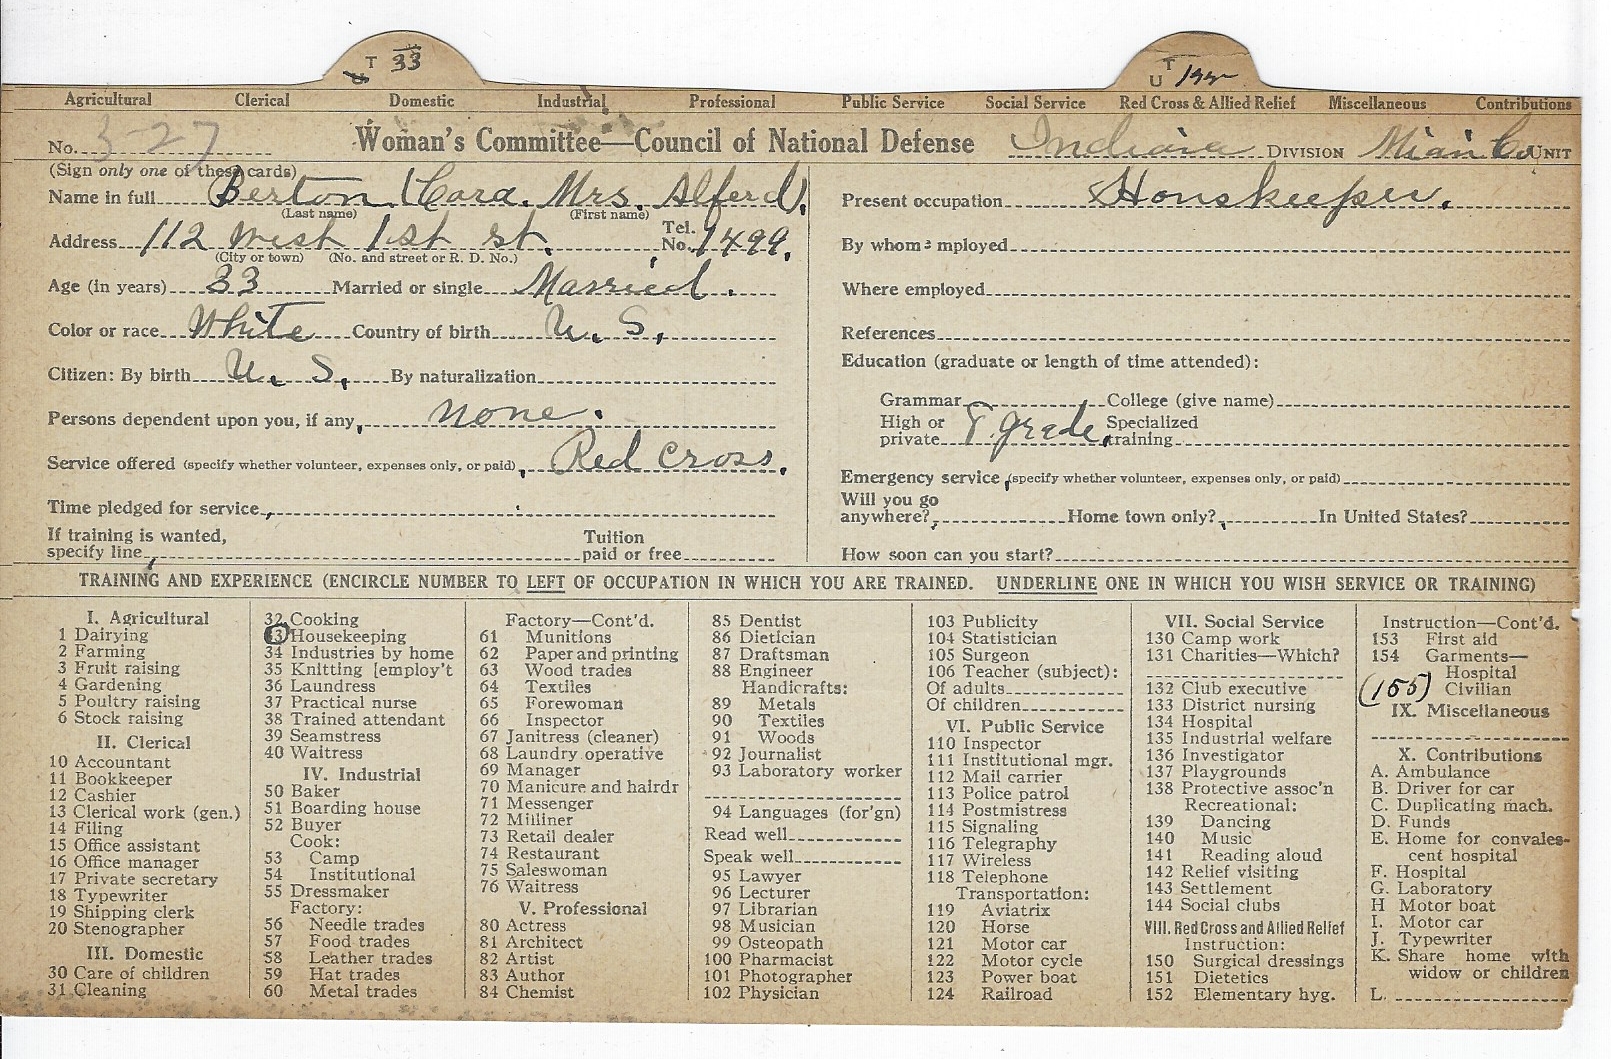 T 33
T
U 155
Agricultural Clerical Domestic Industrial Professional Public Service Social Service Red Cross & Allied Relief Miscellaneous Contributions
No. 3-27 Woman's Committee—Council of National Defense Indiana DIVISION Miami Co. UNIT
(Sign only one of these cards)
Name in full Berton (Cora. Mrs. Alferd).
(Last name) (First name)
Address 112 West 1st st. Tel. No. 1499.
(City or town) (No. and street or R. D. No.)
Age (in years) 33 Married or single Married.
Color or race White Country of birth U. S.
Citizen: By birth U. S. By naturalization
Persons dependent upon you, if any, none.
Service offered (specify whether volunteer, expenses only, or paid), Red Cross.
Time pledged for service,
If training is wanted,
specify line, Tuition
paid or free
Present occupation Houskeeper.
By whom employed
Where employed
References
Education (graduate or length of time attended):
Grammar College (give name)
High or
private 8. grade. Specialized
training
Emergency service (specify whether volunteer, expenses only, or paid)
Will you go
anywhere? Home town only? In United States?
How soon can you start?
TRAINING AND EXPERIENCE (ENCIRCLE NUMBER TO LEFT OF OCCUPATION IN WHICH YOU ARE TRAINED. UNDERLINE ONE IN WHICH YOU WISH SERVICE OR TRAINING)
I. Agricultural
1 Dairying
2 Farming
3 Fruit raising
4 Gardening
5 Poultry raising
6 Stock raising
II. Clerical
10 Accountant
11 Bookkeeper
12 Cashier
13 Clerical work (gen.)
14 Filing
15 Office assistant
16 Office manager
17 Private secretary
18 Typewriter
19 Shipping clerk
20 Stenographer
III. Domestic
30 Care of children
31 Cleaning
32 Cooking
33 Housekeeping
34 Industries by home
35 Knitting [employ't
36 Laundress
37 Practical nurse
38 Trained attendant
39 Seamstress
40 Waitress
IV. Industrial
50 Baker
51 Boarding house
52 Buyer
Cook:
53 Camp
54 Institutional
55 Dressmaker
Factory:
56 Needle trades
57 Food trades
58 Leather trades
59 Hat trades
60 Metal trades
Factory—Cont'd.
61 Munitions
62 Paper and printing
63 Wood trades
64 Textiles
65 Forewoman
66 Inspector
67 Janitress (cleaner)
68 Laundry operative
69 Manager
70 Manicure and hairdr
71 Messenger
72 Milliner
73 Retail dealer
74 Restaurant
75 Saleswoman
76 Waitress
V. Professional
80 Actress
81 Architect
82 Artist
83 Author
84 Chemist
85 Dentist
86 Dietician
87 Draftsman
88 Engineer
Handicrafts:
89 Metals
90 Textiles
91 Woods
92 Journalist
93 Laboratory worker
94 Languages (for'gn)
Read well
Speak well
95 Lawyer
96 Lecturer
97 Librarian
98 Musician
99 Osteopath
100 Pharmacist
101 Photographer
102 Physician
103 Publicity
104 Statistician
105 Surgeon
106 Teacher (subject):
Of adults
Of children
VI. Public Service
110 Inspector
111 Institutional mgr.
112 Mail carrier
113 Police patrol
114 Postmistress
115 Signaling
116 Telegraphy
117 Wireless
118 Telephone
Transportation:
119 Aviatrix
120 Horse
121 Motor car
122 Motor cycle
123 Power boat
124 Railroad
VII. Social Service
130 Camp work
131 Charities—Which?
132 Club executive
133 District nursing
134 Hospital
135 Industrial welfare
136 Investigator
137 Playgrounds
138 Protective assoc'n
Recreational:
139 Dancing
140 Music
141 Reading aloud
142 Relief visiting
143 Settlement
144 Social clubs
VIII. Red Cross and Allied Relief
Instruction:
150 Surgical dressings
151 Dietetics
152 Elementary hyg.
Instruction—Cont'd.
153 First aid
154 Garments—
Hospital
(155) Civilian
IX. Miscellaneous
X. Contributions
A. Ambulance
B. Driver for car
C. Duplicating mach.
D. Funds
E. Home for convales-
cent hospital
F. Hospital
G. Laboratory
H Motor boat
I. Motor car
J. Typewriter
K. Share home with
widow or children
L.